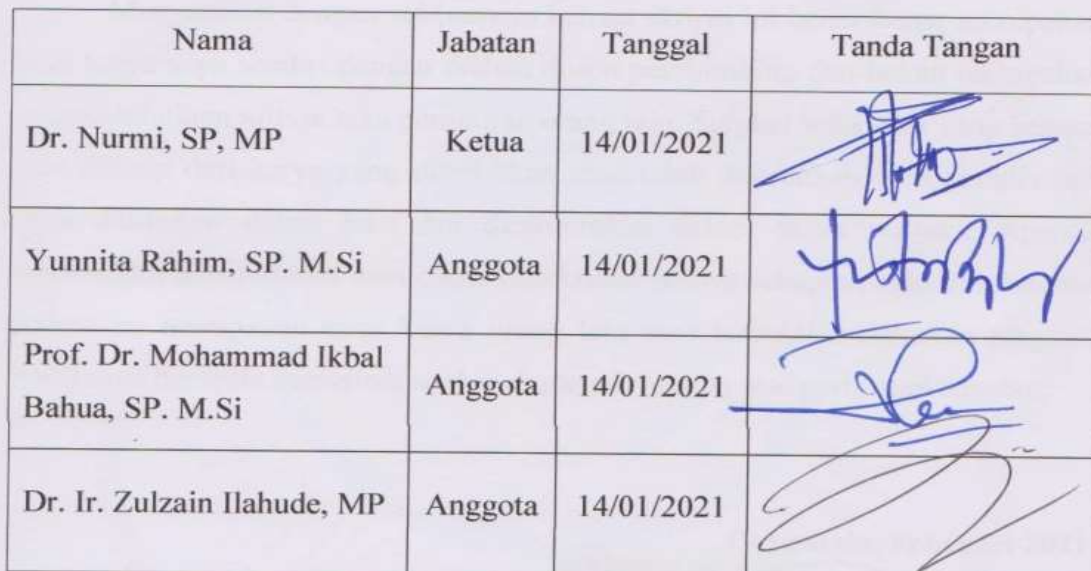 Nama Jabatan Tanggal Tanda Tangan
Dr. Nurmi, SP, MP Ketua 14/01/2021
Yunnita Rahim, SP. M.Si Anggota 14/01/2021
Prof. Dr. Mohammad Ikbal
Bahua, SP. M.Si Anggota 14/01/2021
Dr. Ir. Zulzain Ilahude, MP Anggota 14/01/2021